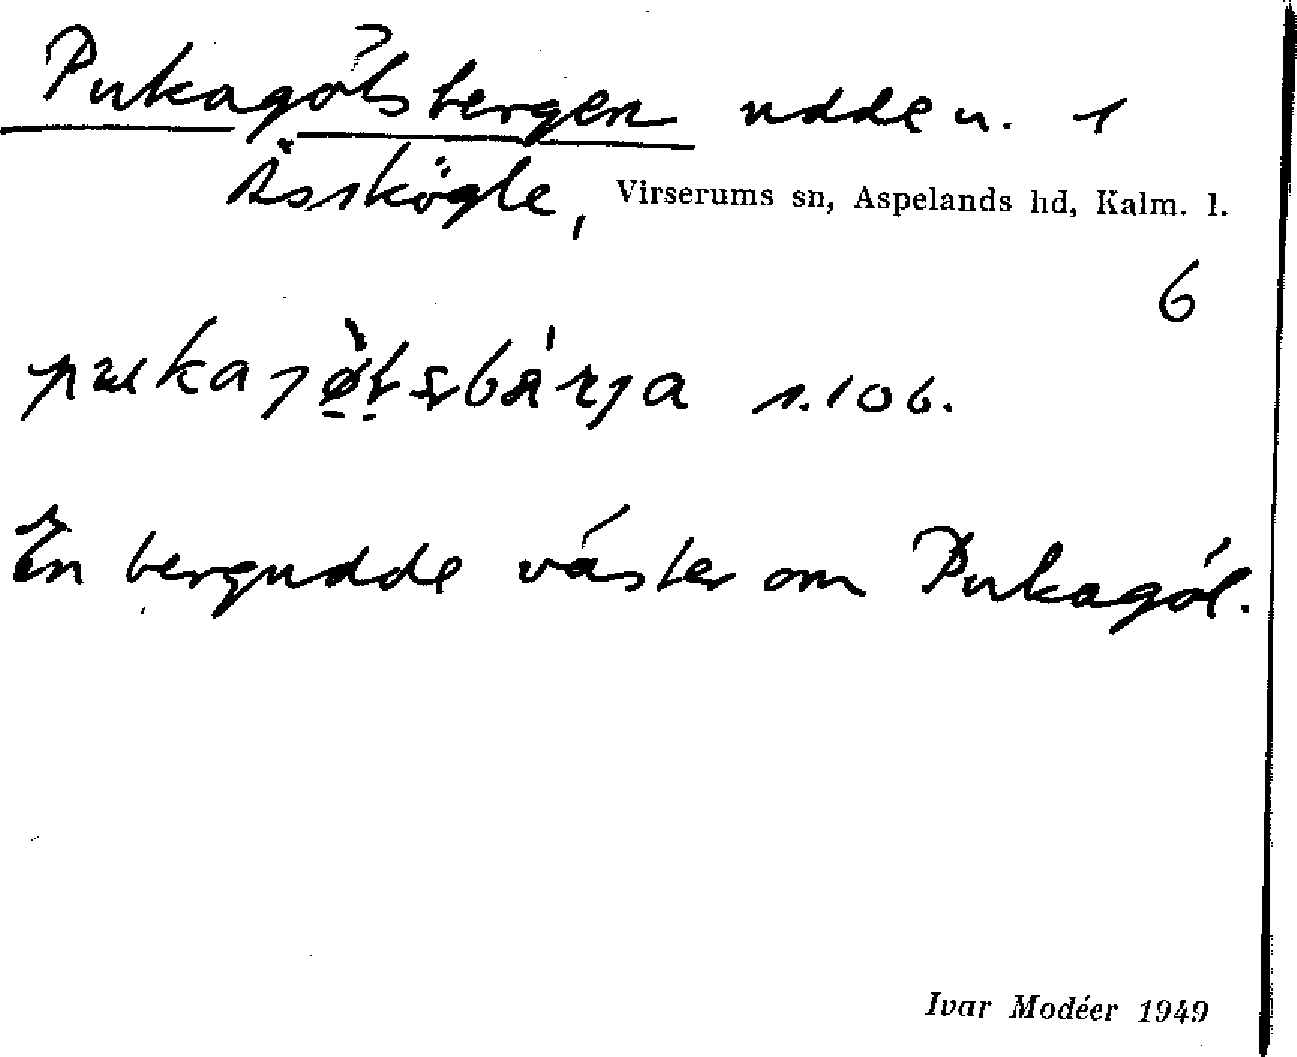 Pukagölsbergen udde u. 1
Ässkögle, Virserums sn, Aspelands hd, Kalm. l.
6
s. 106.
En bergudde väster om Pukagöl.
Ivar Modéer 1949